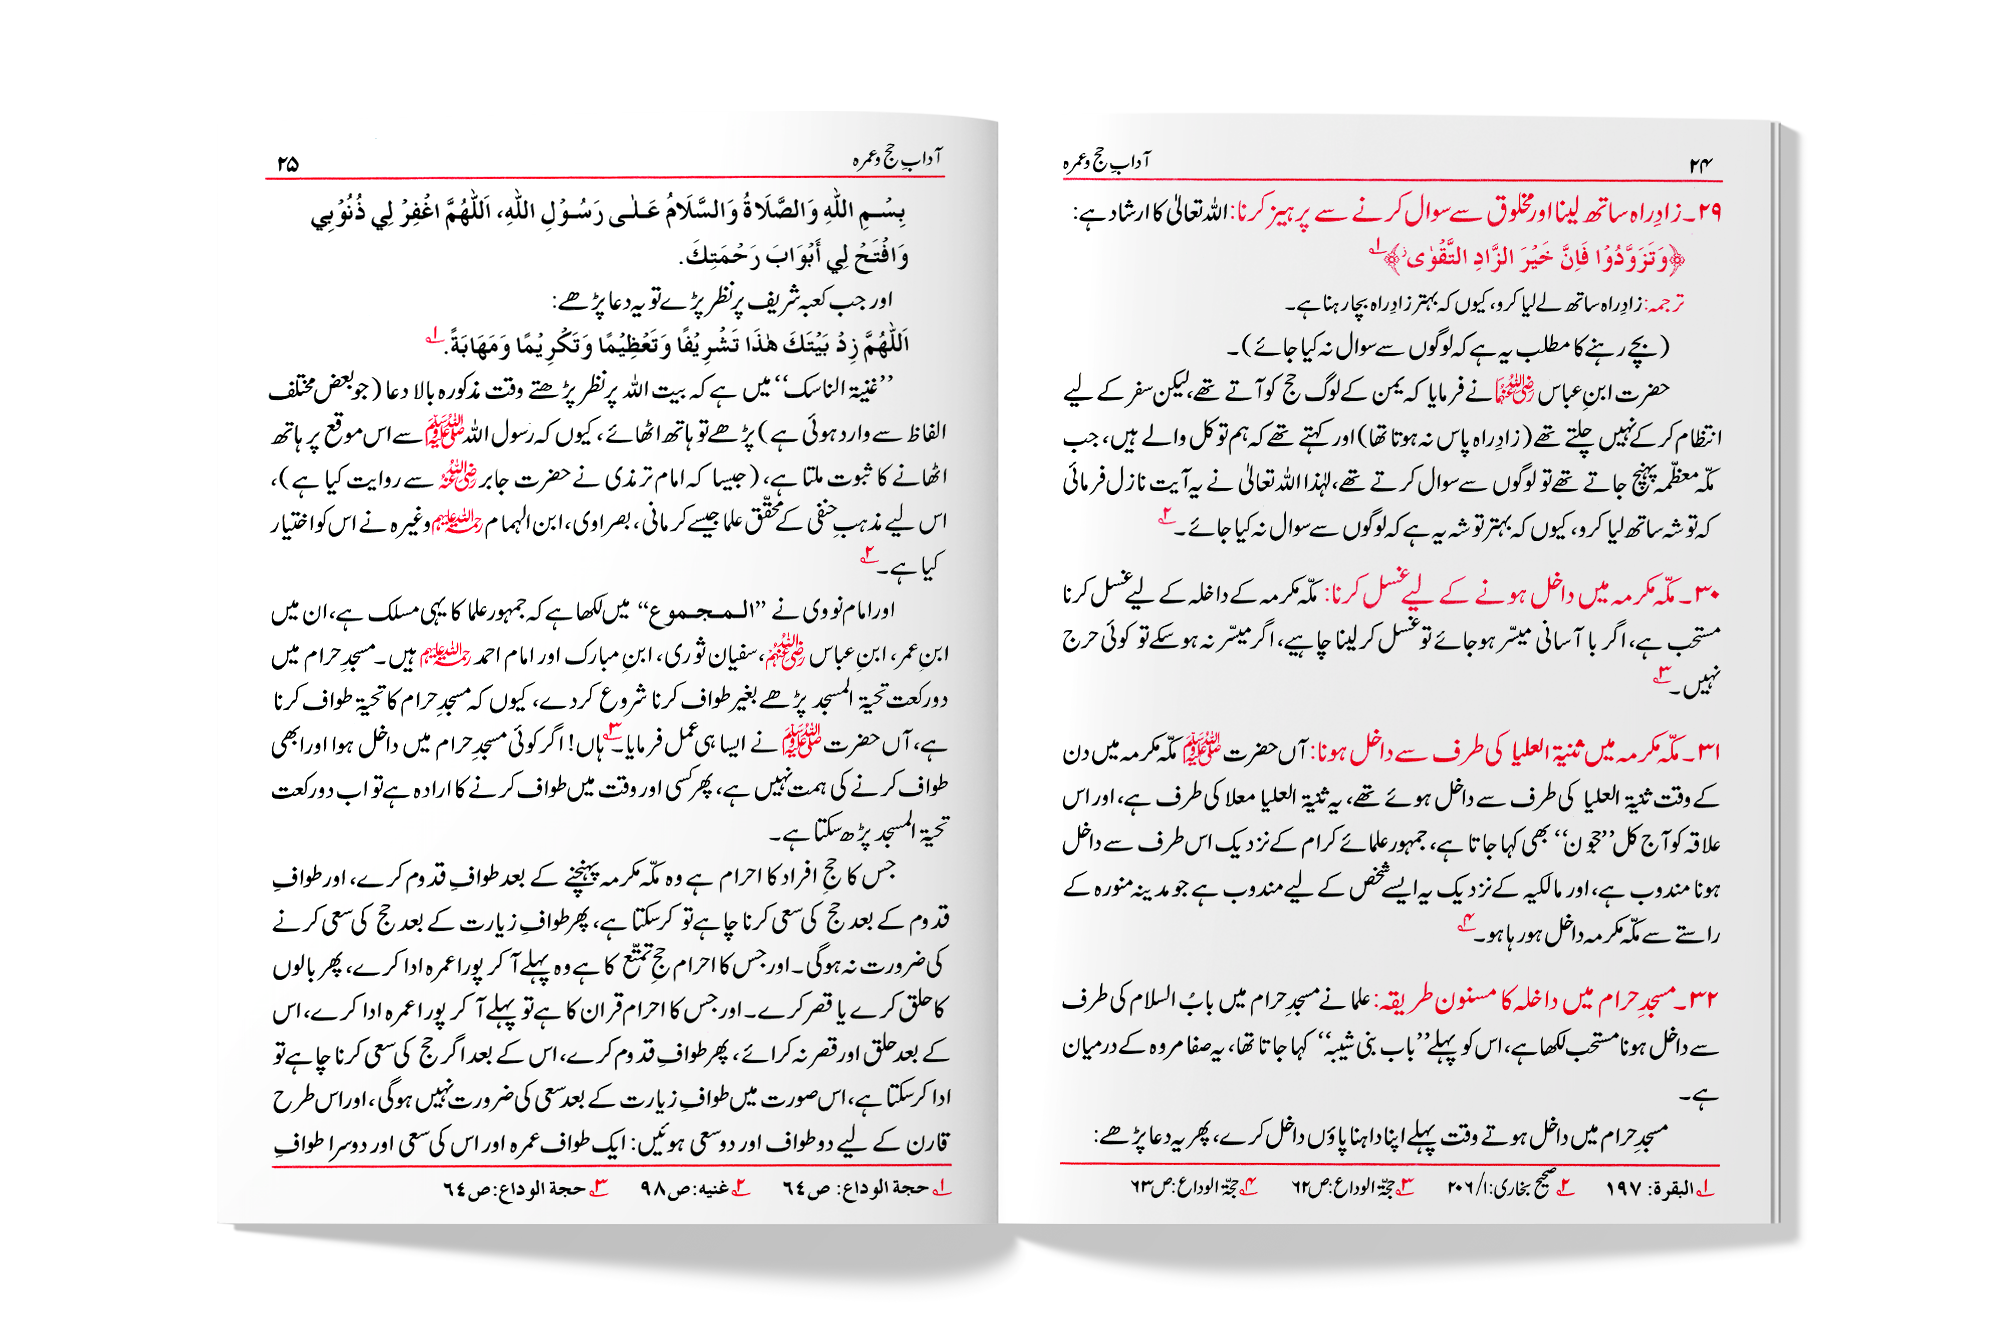 ۲۴ آدابِ حج و عمرہ
۲۹۔ زادِ راہ ساتھ لینا اور مخلوق سے سوال کرنے سے پرہیز کرنا: اللہ تعالیٰ کا ارشاد ہے:
﴿وَتَزَوَّدُوْا فَاِنَّ خَيْرَ الزَّادِ التَّقْوٰى﴾ ۱؎
ترجمہ: زادِ راہ ساتھ لے لیا کرو، کیوں کہ بہتر زادِ راہ بچا رہنا ہے۔
(بچے رہنے کا مطلب یہ ہے کہ لوگوں سے سوال نہ کیا جائے)۔
حضرت ابنِ عباس رضی اللہ عنہما نے فرمایا کہ یمن کے لوگ حج کو آتے تھے، لیکن سفر کے لیے
انتظام کرکے نہیں چلتے تھے (زادِ راہ پاس نہ ہوتا تھا) اور کہتے تھے کہ ہم توکل والے ہیں، جب
مکہ معظّمہ پہنچ جاتے تھے تو لوگوں سے سوال کرتے تھے، لہٰذا اللہ تعالیٰ نے یہ آیت نازل فرمائی
کہ توشہ ساتھ لیا کرو، کیوں کہ بہتر توشہ یہ ہے کہ لوگوں سے سوال نہ کیا جائے۔ ۲؎
۳۰۔ مکّہ مکرمہ میں داخل ہونے کے لیے غسل کرنا: مکّہ مکرمہ کے داخلہ کے لیے غسل کرنا
مستحب ہے، اگر با آسانی میسّر ہوجائے تو غسل کرلینا چاہیے، اگر میسّر نہ ہوسکے تو کوئی حرج
نہیں۔ ۳؎
۳۱۔ مکّہ مکرمہ میں ثنیۃ العلیا کی طرف سے داخل ہونا: آں حضرت ﷺ مکّہ مکرمہ میں دن
کے وقت ثنیۃ العلیا کی طرف سے داخل ہوئے تھے، یہ ثنیۃ العلیا معلا کی طرف ہے، اور اس
علاقہ کو آج کل ’’حجون‘‘ بھی کہا جاتا ہے، جمہور علمائے کرام کے نزدیک اس طرف سے داخل
ہونا مندوب ہے، اور مالکیہ کے نزدیک یہ ایسے شخص کے لیے مندوب ہے جو مدینہ منورہ کے
راستے سے مکّہ مکرمہ داخل ہورہا ہو۔ ۴؎
۳۲۔ مسجدِ حرام میں داخلہ کا مسنون طریقہ: علما نے مسجدِ حرام میں بابُ السلام کی طرف
سے داخل ہونا مستحب لکھا ہے، اس کو پہلے ’’باب بنی شیبہ‘‘ کہا جاتا تھا، یہ صفا مروہ کے درمیان
ہے۔
مسجدِ حرام میں داخل ہوتے وقت پہلے اپنا داہنا پاؤں داخل کرے، پھر یہ دعا پڑھے:
۱؎ البقرۃ: ۱۹۷ ۲؎ صحیح بخاری: ۱/۲۰۶ ۳؎ حجّۃ الوداع: ص۶۲ ۴؎ حجّۃ الوداع: ص۶۳
آدابِ حج و عمرہ ۲۵
بِسْمِ اللّٰهِ وَالصَّلَاةُ وَالسَّلَامُ عَلٰى رَسُوْلِ اللّٰهِ، اَللّٰهُمَّ اغْفِرْ لِي ذُنُوْبِي
وَافْتَحْ لِي أَبْوَابَ رَحْمَتِكَ.
اور جب کعبہ شریف پر نظر پڑے تو یہ دعا پڑھے:
اَللّٰهُمَّ زِدْ بَيْتَكَ هٰذَا تَشْرِيْفًا وَتَعْظِيْمًا وَتَكْرِيْمًا وَمَهَابَةً. ۱؎
’’غنیۃ الناسک‘‘ میں ہے کہ بیت اللہ پر نظر پڑھتے وقت مذکورہ بالا دعا (جو بعض مختلف
الفاظ سے وارد ہوئی ہے) پڑھے تو ہاتھ اٹھائے، کیوں کہ رسول اللہ ﷺ سے اس موقع پر ہاتھ
اٹھانے کا ثبوت ملتا ہے، (جیسا کہ امام ترمذی نے حضرت جابر رضی اللہ عنہ سے روایت کیا ہے)،
اس لیے مذہبِ حنفی کے محقّق علما جیسے کرمانی، بصراوی، ابن الہمام رحمۃ اللہ علیہم وغیرہ نے اس کو اختیار
کیا ہے۔ ۲؎
اور امام نووی نے ’’المجموع‘‘ میں لکھا ہے کہ جمہور علما کا یہی مسلک ہے، ان میں
ابنِ عمر، ابنِ عباس رضی اللہ عنہم، سفیان ثوری، ابنِ مبارک اور امام احمد رحمۃ اللہ علیہم ہیں۔ مسجدِ حرام میں
دو رکعت تحیۃ المسجد پڑھے بغیر طواف کرنا شروع کردے، کیوں کہ مسجدِ حرام کا تحیۃ طواف کرنا
ہے، آں حضرت ﷺ نے ایسا ہی عمل فرمایا۔ ۳؎ ہاں! اگر کوئی مسجدِ حرام میں داخل ہوا اور ابھی
طواف کرنے کی ہمت نہیں ہے، پھر کسی اور وقت میں طواف کرنے کا ارادہ ہے تو اب دو رکعت
تحیۃ المسجد پڑھ سکتا ہے۔
جس کا حجِ افراد کا احرام ہے وہ مکّہ مکرمہ پہنچنے کے بعد طوافِ قدوم کرے، اور طوافِ
قدوم کے بعد حج کی سعی کرنا چاہے تو کرسکتا ہے، پھر طوافِ زیارت کے بعد حج کی سعی کرنے
کی ضرورت نہ ہوگی۔ اور جس کا احرام حجِ تمتّع کا ہے وہ پہلے آکر پورا عمرہ ادا کرے، پھر بالوں
کا حلق کرے یا قصر کرے۔ اور جس کا احرام قران کا ہے تو پہلے آکر پورا عمرہ ادا کرے، اس
کے بعد حلق اور قصر نہ کرائے، پھر طوافِ قدوم کرے، اس کے بعد اگر حج کی سعی کرنا چاہے تو
ادا کرسکتا ہے، اس صورت میں طوافِ زیارت کے بعد سعی کی ضرورت نہیں ہوگی، اور اس طرح
قارن کے لیے دو طواف اور دو سعی ہوئیں: ایک طواف عمرہ اور اس کی سعی اور دوسرا طوافِ
۱؎ حجۃ الوداع: ص۶۴ ۲؎ غنیہ: ص۹۸ ۳؎ حجۃ الوداع: ص۶۴